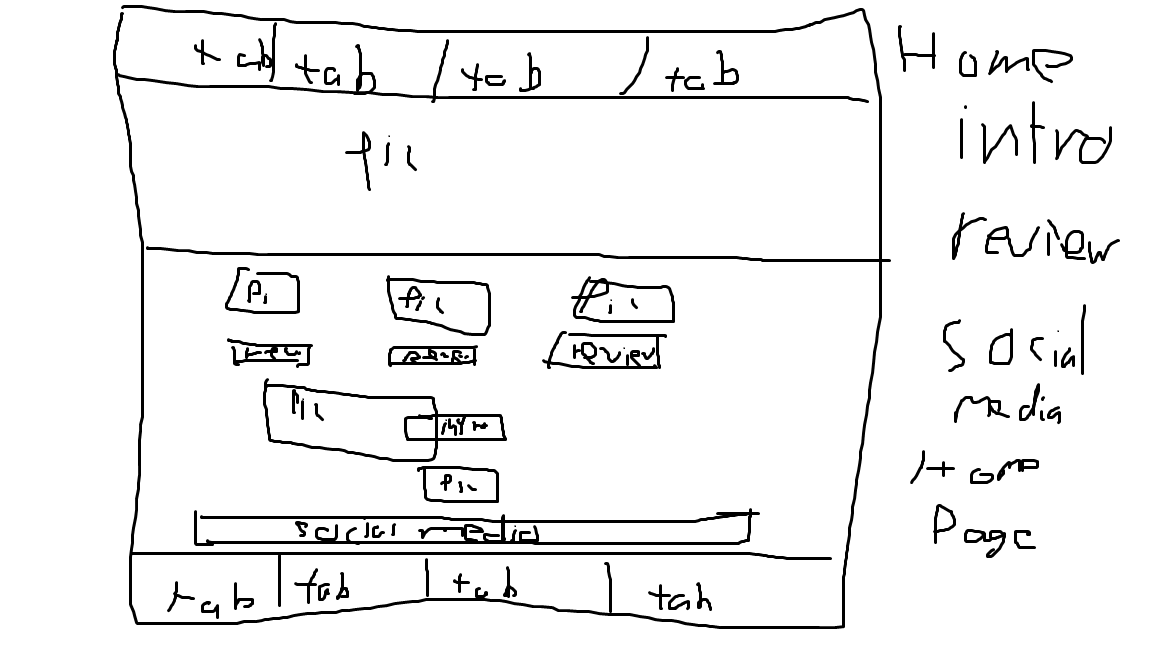 tab tab tab tab
pic
pi pic pic
review
pic intro
pic
social media
tab tab tab tab
Home
intro
review
social
media
Home
Page